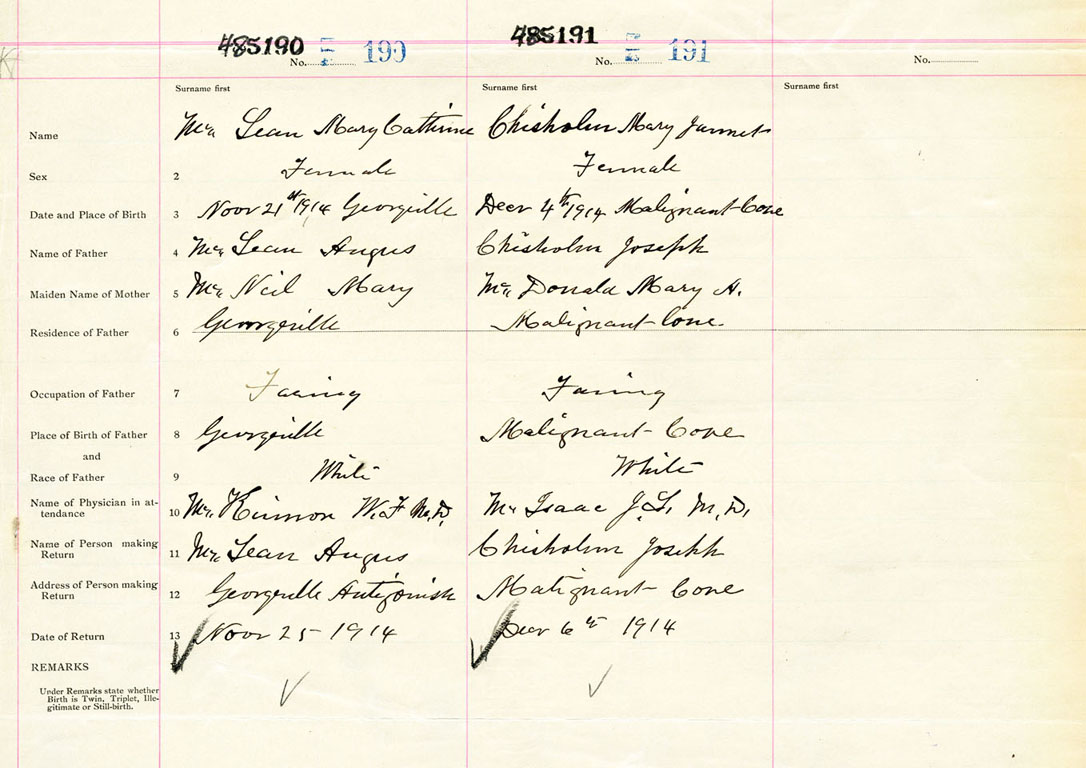 485190 190 485191 191
No. No. No.
Surname first Surname first Surname first
Name Mc Lean Mary Catherine Chisholm Mary Jannet
Sex 2 Female Female
Date and Place of Birth 3 Novr 21st 1914 Georgville Decr 4th 1914 Malignant Cove
Name of Father 4 Mc Lean Angus Chisholm Joseph
Maiden Name of Mother 5 Mc Neil Mary Mc Donald Mary A.
Residence of Father 6 Georgville Malignant Cove
Occupation of Father 7 Faring Faring
Place of Birth of Father 8 Georgville Malignant Cove
and
Race of Father 9 White White
Name of Physician in at-
tendance 10 Mc Kinnon W.F M.D. Mc Isaac J.S. M.D.
Name of Person making
Return 11 Mc Lean Angus Chisholm Joseph
Address of Person making
Return 12 Georgville Antigonish Malignant Cove
Date of Return 13 Novr 25 1914 Decr 6th 1914
REMARKS
Under Remarks state whether
Birth is Twin, Triplet, Ille-
gitimate or Still-birth.